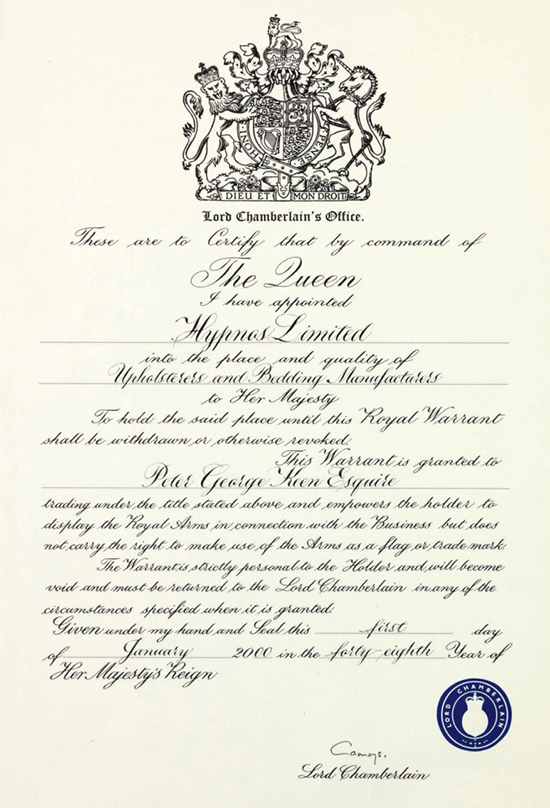 HON PENSE
DIEU ET MON DROIT
Lord Chamberlain's Office.
These are to Certify that by command of
The Queen
I have appointed
Hypnos Limited
into the place and quality of
Upholsterers and Bedding Manufacturers
to Her Majesty
To hold the said place until this Royal Warrant
shall be withdrawn or otherwise revoked.
This Warrant is granted to
Peter George Keen Esquire
trading under the title stated above and empowers the holder to
display the Royal Arms in connection with the Business but does
not carry the right to make use of the Arms as a flag or trade mark.
The Warrant is strictly personal to the Holder and will become
void and must be returned to the Lord Chamberlain in any of the
circumstances specified when it is granted.
Given under my hand and Seal this first day
of January 2000 in the forty-eighth Year of
Her Majesty's Reign
LORD CHAMBERLAIN
Camoys.
Lord Chamberlain